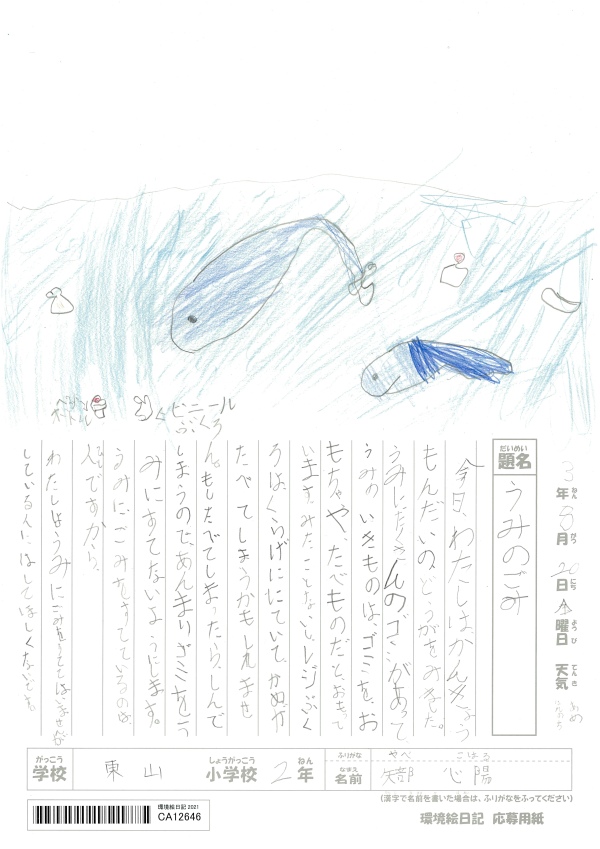 ペット
ボトル
ビニール
ぶくろ
3年8月20日金曜日 天気 あめ
ねん がつ にち ようび てんき
だいめい
題名
うみのごみ
今日、わたしは、かんきょう
もんだいの、どうがをみました。
うみにたくさんのゴミがあって
うみの いきものは、ゴミを、お
もちゃや、たべものだと、おもって
います。みたことないし、レジぶく
ろは、くらげににていて、かめが
たべてしまうかもしれませ
ん。もしたべてしまったら、しんで
しまうので、あんまりゴミをう
みにすてないようにします。
うみに、ごみをすてているのは、
人ですから、
わたしはうみにごみをすててはいませんが
している人に、はしてほしくないです。
がっこう しょうがっこう ねん ふりがな やべ こはる
学校 東山 小学校 2年 なまえ 名前 矢部 心陽
(漢字で名前を書いた場合は、ふりがなをふってください)
環境絵日記 2021
CA12646
環境絵日記 応募用紙